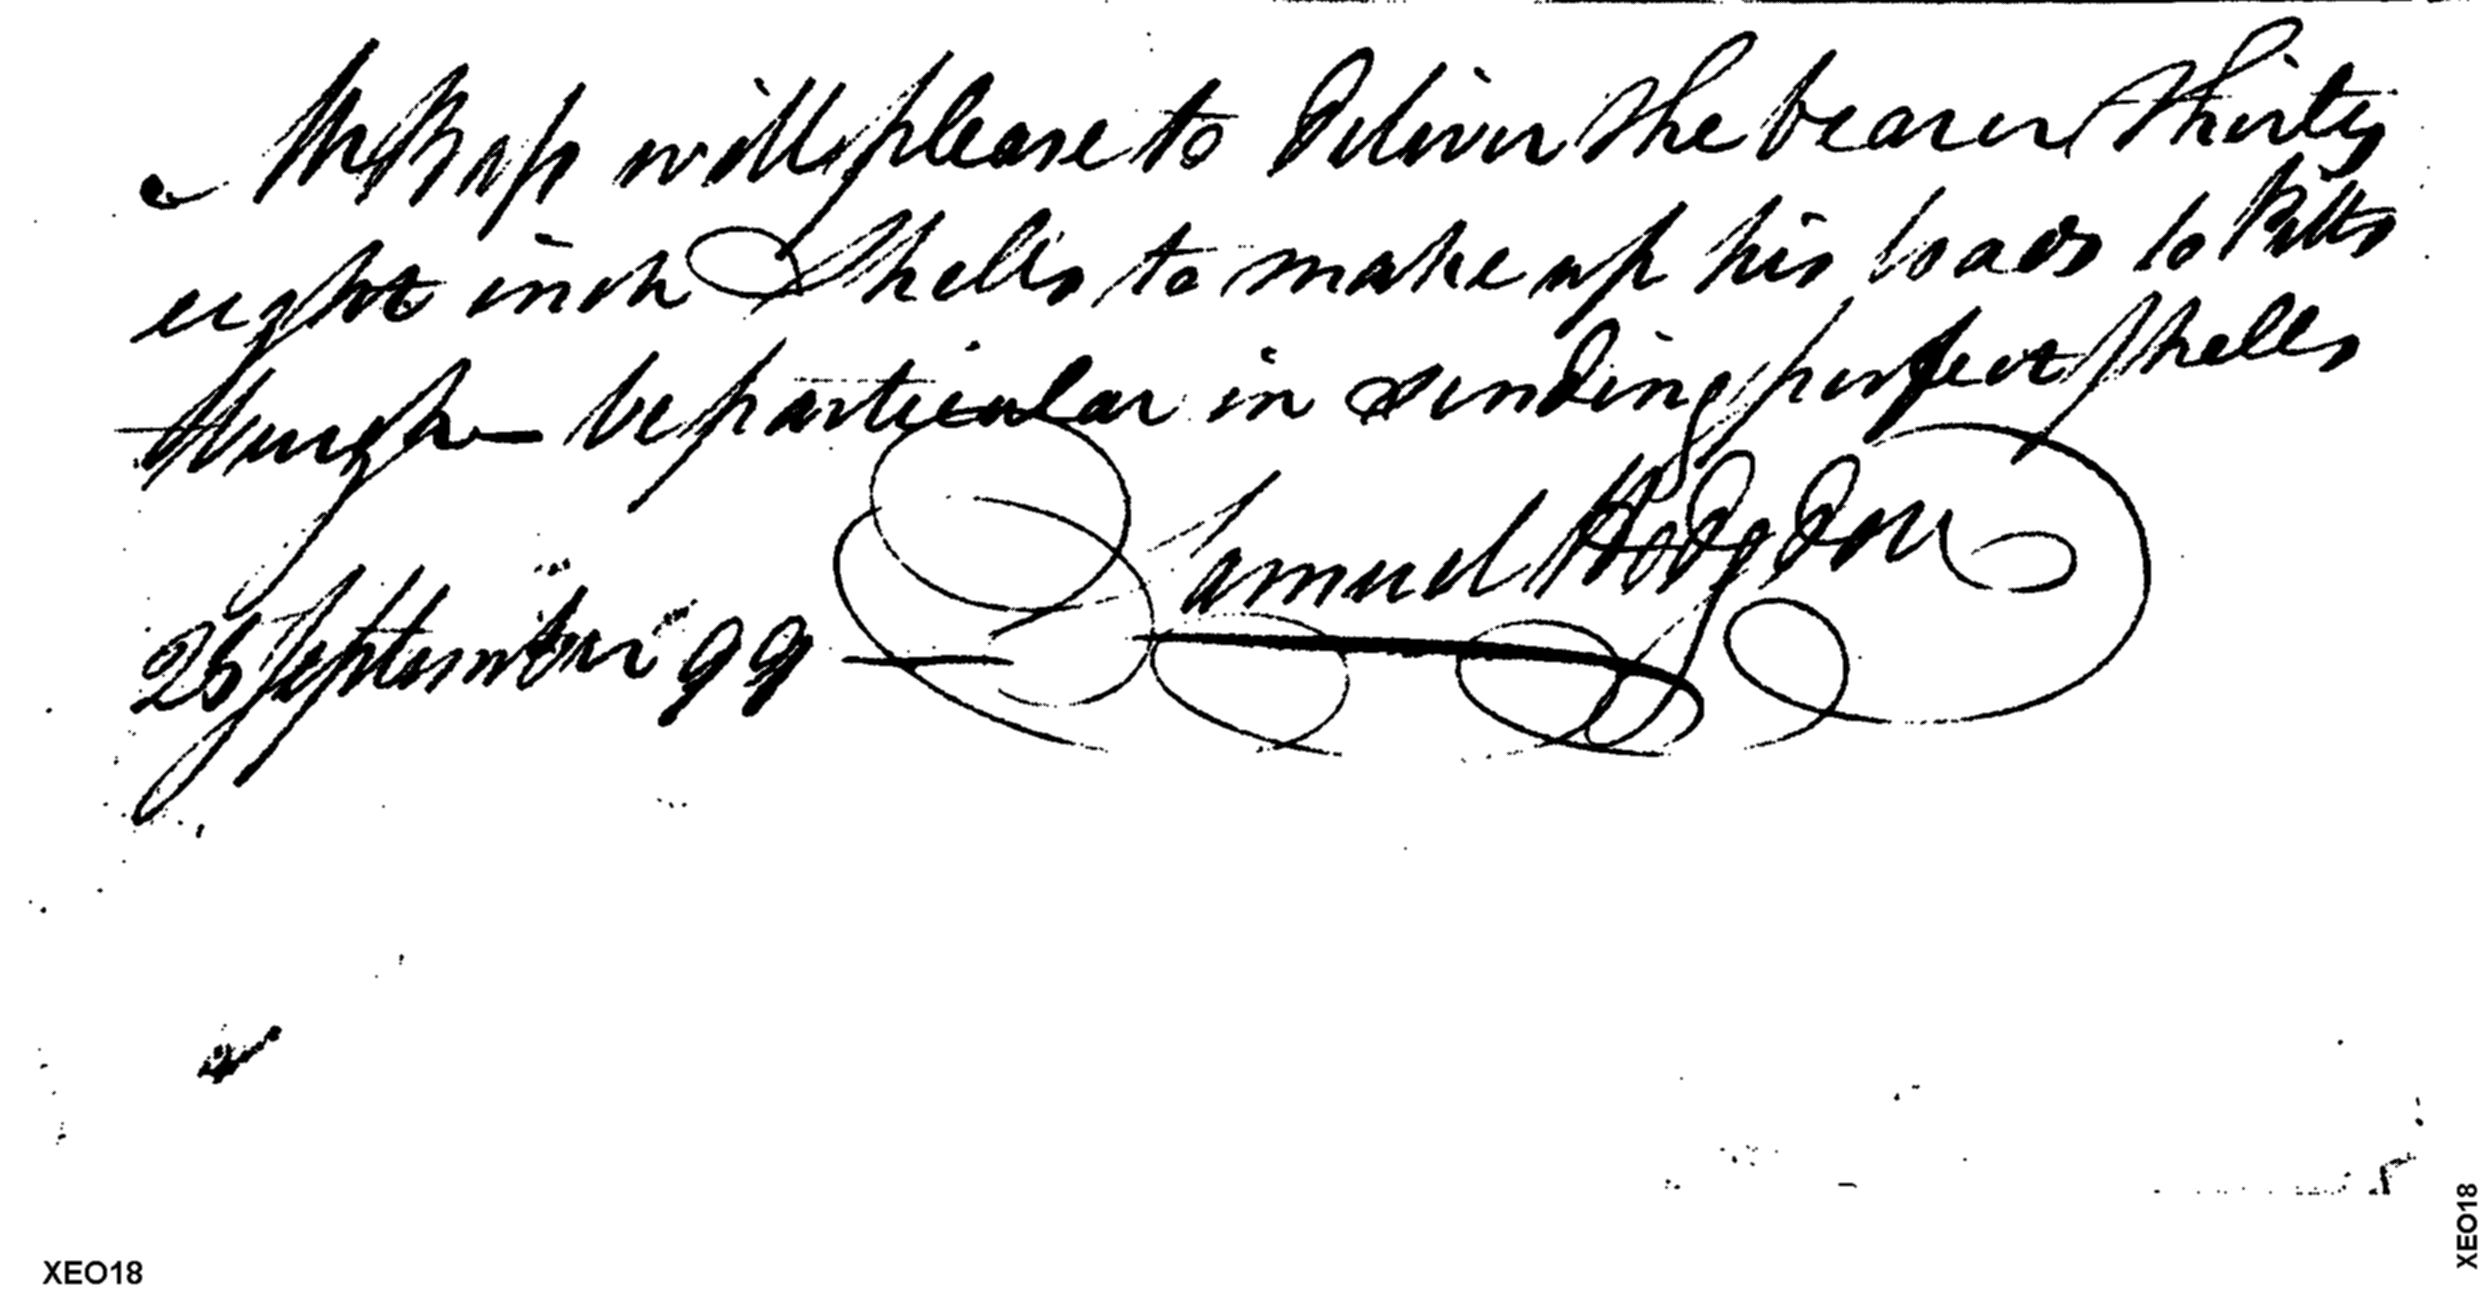 Mr Rapp will please to deliver the bearer thirty
eight inch Shells to make up his loads to Pitts
burgh — be particular in sending perfect shells
Samuel Hodgdon
25 September 99
XEO18
XEO18